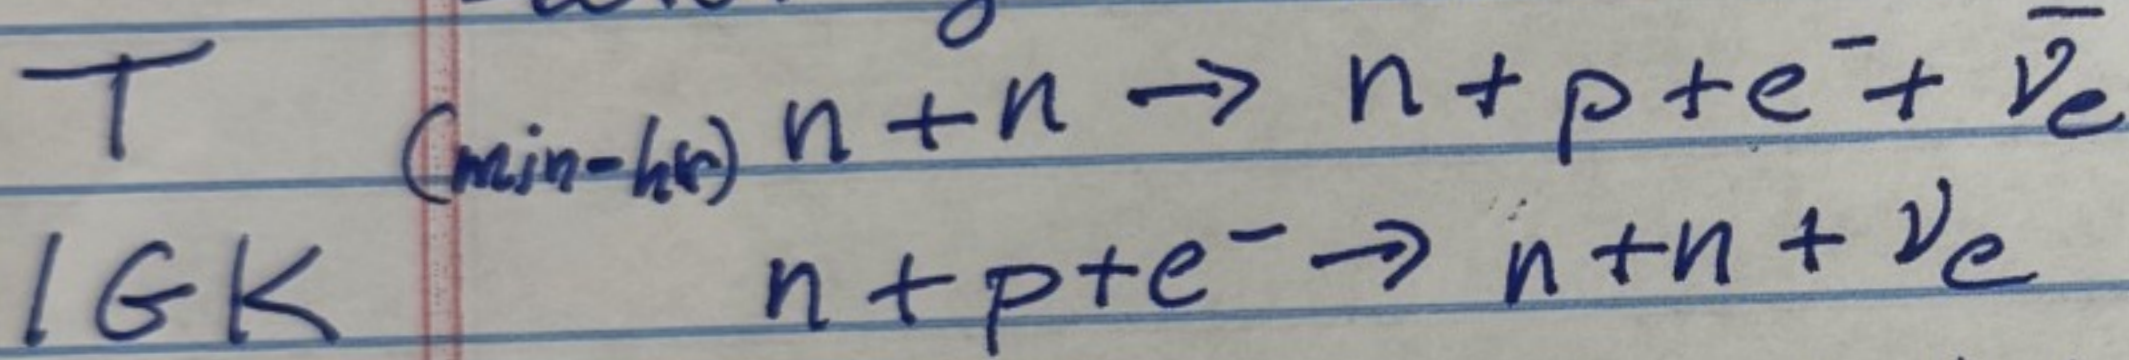 T (min-hr) n + n → n + p + e⁻ + ν̄ₑ
1GK n + p + e⁻ → n + n + νₑ